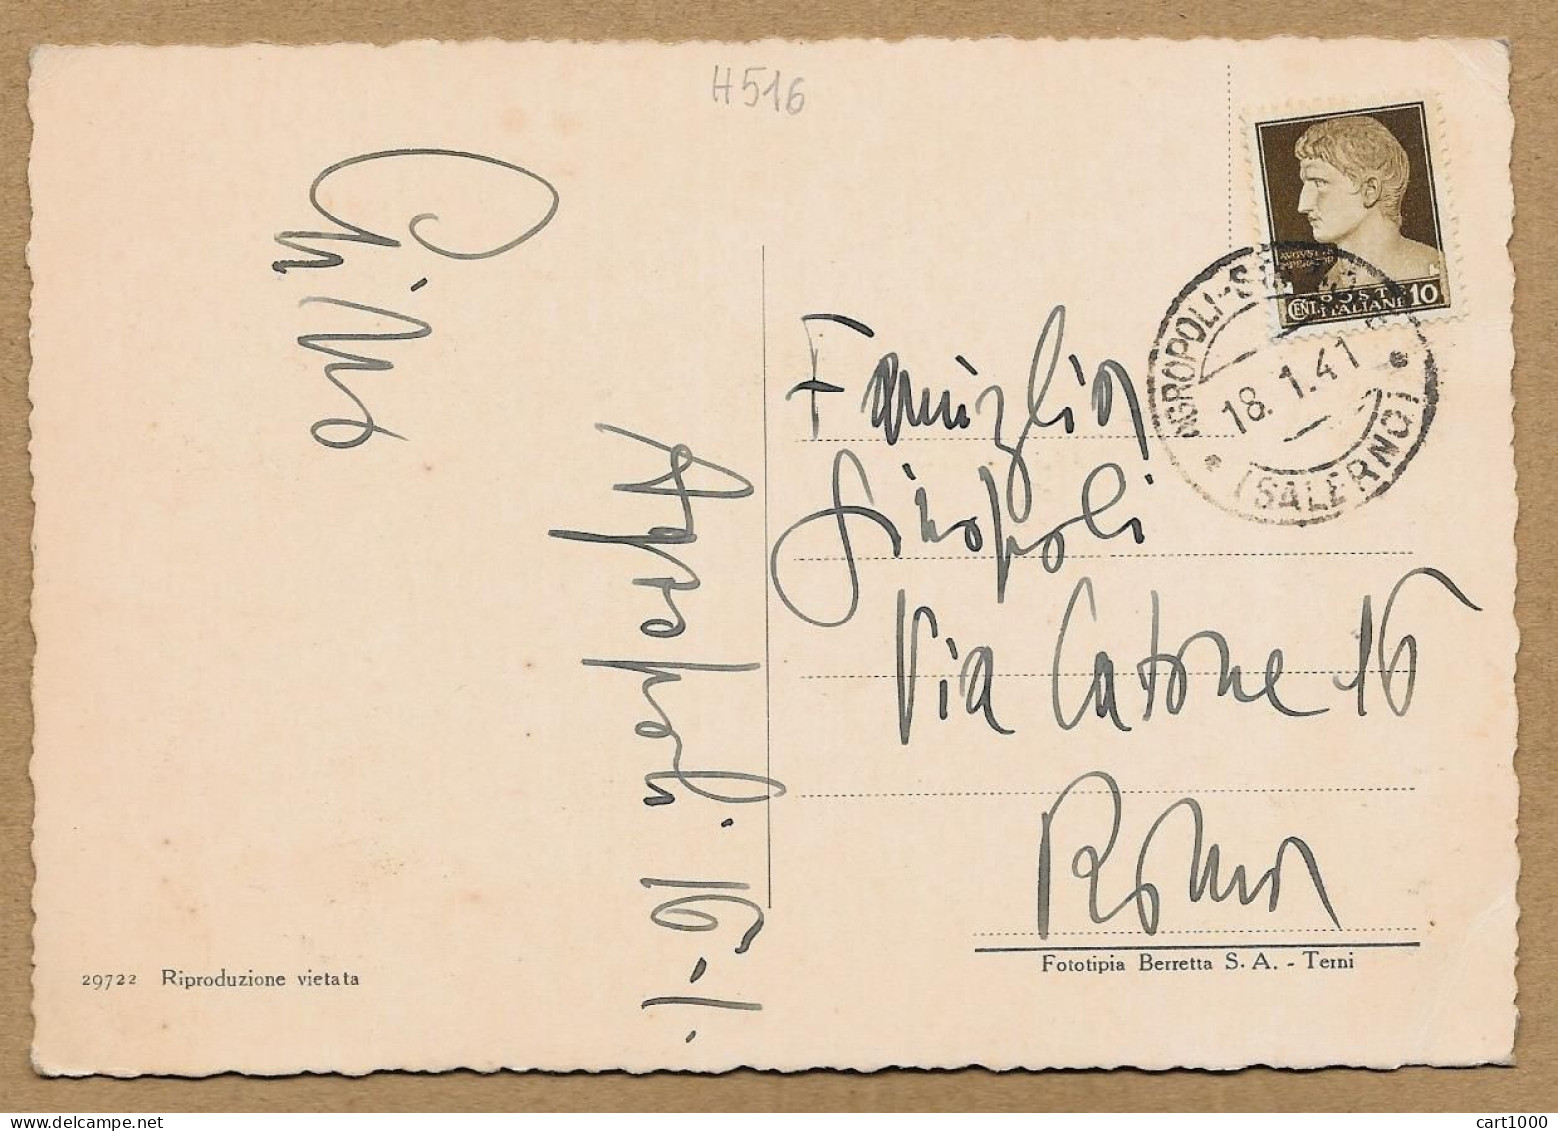 H516
Agropoli 16-1-
Famiglia
Sinopoli
Via Catone 16
Roma
AVGVSTVS
IMPERATOR
POSTE
CENT. ITALIANE 10
AGROPOLI-
18.1.41
(SALERNO)
29722 Riproduzione vietata
Fototipia Berretta S. A. - Terni
cart1000